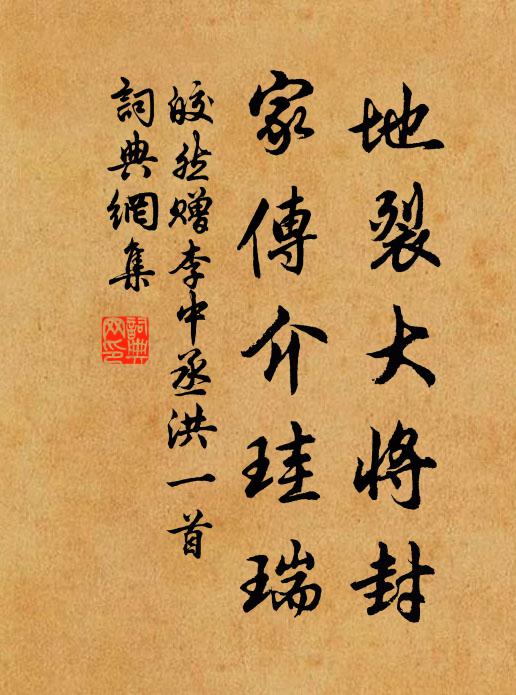 地裂大将封
家傳介珪瑞
皎然赠李中丞洪一首
詞典網集
詞典
网印